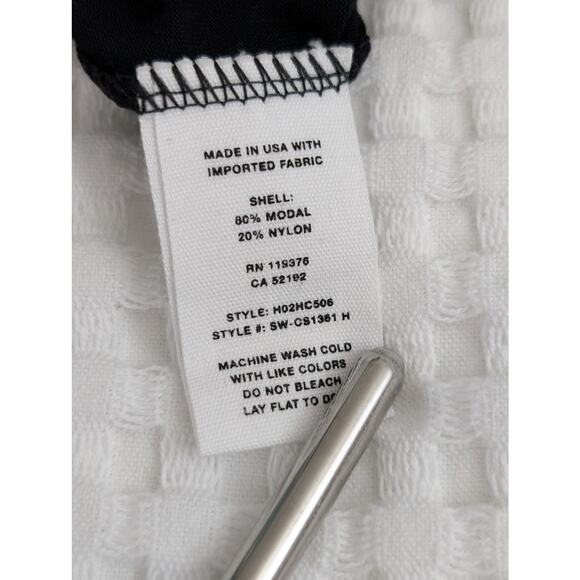 MADE IN USA WITH
IMPORTED FABRIC
SHELL:
80% MODAL
20% NYLON
RN 119376
CA 52192
STYLE: H02HC506
STYLE #: SW-CS1361 H
MACHINE WASH COLD
WITH LIKE COLORS
DO NOT BLEACH
LAY FLAT TO